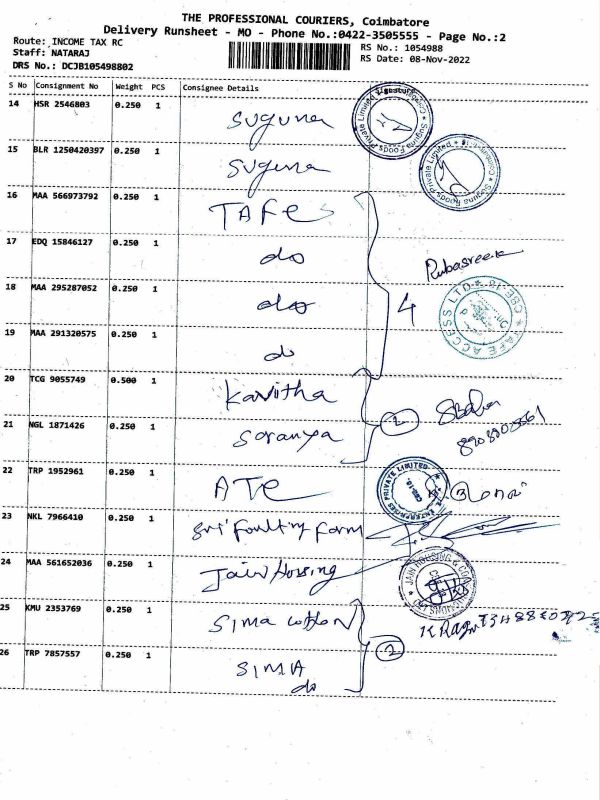 THE PROFESSIONAL COURIERS, Coimbatore
Delivery Runsheet - MO - Phone No.:0422-3505555 - Page No.:2
Route: INCOME TAX RC
Staff: NATARAJ
DRS No.: DCJB105498802
RS No.: 1054988
RS Date: 08-Nov-2022
S No Consignment No Weight PCS Consignee Details
14 HSR 2546803 0.250 1 Suguna
15 BLR 1250420397 0.250 1 Suguna
16 MAA 566973792 0.250 1 TAFE
17 EDQ 15846127 0.250 1 do
18 MAA 295287052 0.250 1 do
4
19 MAA 291320575 0.250 1 do
20 TCG 9055749 0.500 1 Kavitha
2
21 NGL 1871426 0.250 1 Soranya
22 TRP 1952961 0.250 1 ATE
23 NKL 7966410 0.250 1 Sri Poulting Farm
24 MAA 561652036 0.250 1 Jain Housing
JAIN HOUSING & CO
25 KMU 2353769 0.250 1 SIMA Cotton
2
26 TRP 7857557 0.250 1 SIMA
do
Suguna Foods Private Limited * Coimbatore-18
Suguna Foods Private Limited * Coimbatore-18
Rubasree
TAFE ACCESS LTD * CBE-18 *
ENTERPRISES PRIVATE LIMITED